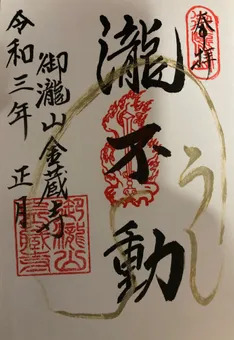 奉拝
瀧不動
うし
御瀧山金蔵寺
令和三年 正月